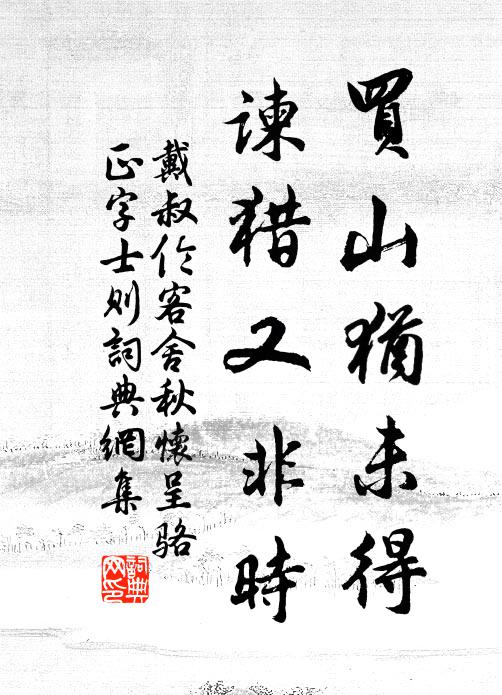 買山猶未得
諫猎又非時
戴叔伦客舍秋懷呈骆
正字士则詞典網集
詞典网印